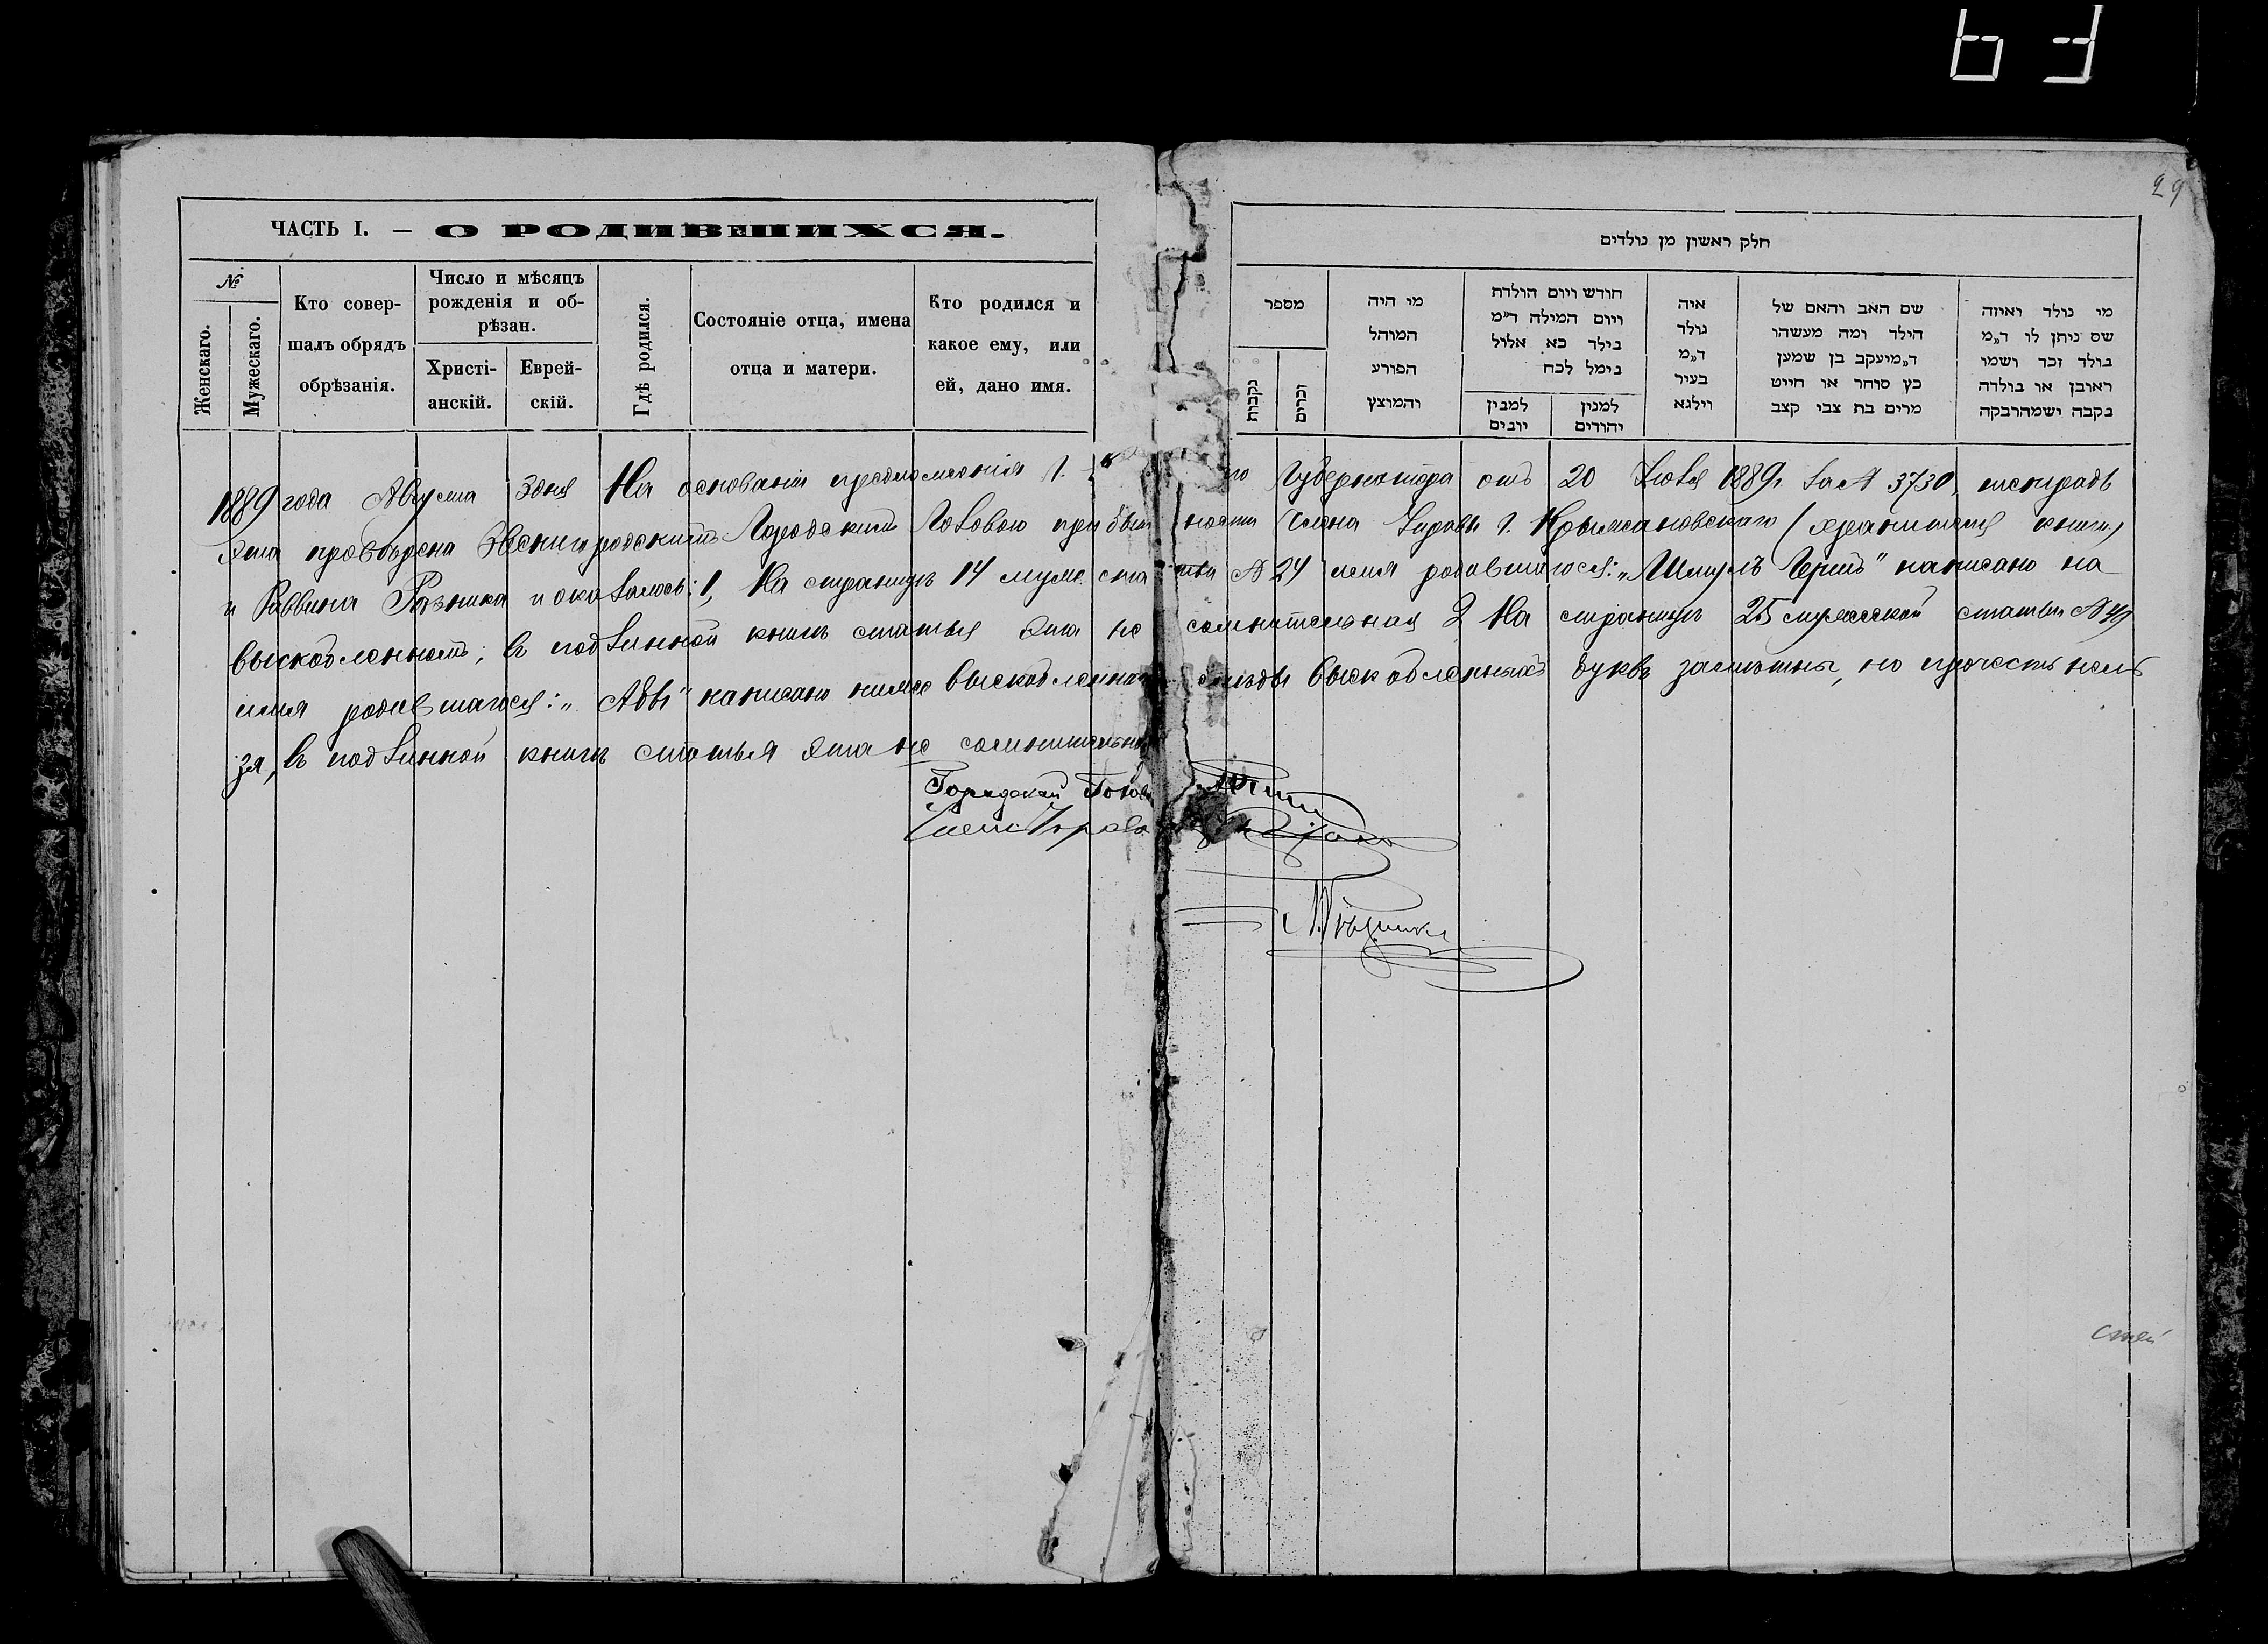 63
29
ЧАСТЬ I. — О РОДИВШИХСЯ.
№
Женскаго.
Мужескаго.
Кто совер-
шалъ обрядъ
обрѣзанія.
Число и мѣсяцъ
рожденія и об-
рѣзан.
Христі-
анскій.
Еврей-
скій.
Гдѣ родился.
Состояніе отца, имена
отца и матери.
Кто родился и
какое ему, или
ей, дано имя.
חלק ראשון מן נולדים
מספר
נקבות
זכרים
מי היה
המוהל
הפורע
והמוצץ
חודש ויום הולדת
ויום המילה ד״מ
בילד כא אלול
נימל לכח
למנין
יונים
למנין
יהודים
איה
נולד
ד״מ
בעיר
וילנא
שם האב והאם של
הילד ומה מעשהו
ד״מ יעקב בן שמען
כץ סוחר או חייט
מרים בת צבי קצב
מי נולד ואיזה
שם ניתן לו ד״מ
נולד זכר ושמו
ראובן או נולדה
נקבה ישמה רבקה
1889 года Августа 3 дня На основаніи предложенія Г. Губернатора отъ 20 Іюля 1889 г. за № 3730, тетрадь
эта провѣрена Звенигородскимъ Городскимъ Головою при бытности Члена Управы Г. Крыжановскаго (хранителя книги)
и Раввина Рѣзника и оказалось: 1, На страницѣ 14 муж. статьи № 24 имя родившагося: „Шмуль Гершъ" написано на
выскобленномъ; въ подлинной книгѣ статья эта не сомнительная 2 На страницѣ 25 мужской статьи № 49
имя родившагося: „Абы" написано ниже выскобленнаго слѣды выскобленныхъ буквъ замѣтны, но прочесть нель
зя, въ подлинной книгѣ статья эта не сомнительна
Городской Голова
Членъ Управы
Рѣзникъ